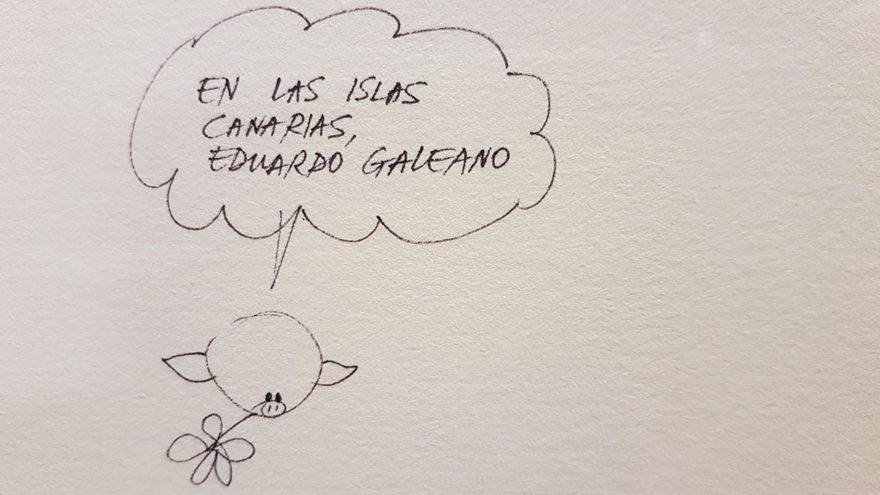 EN LAS ISLAS
CANARIAS,
EDUARDO GALEANO